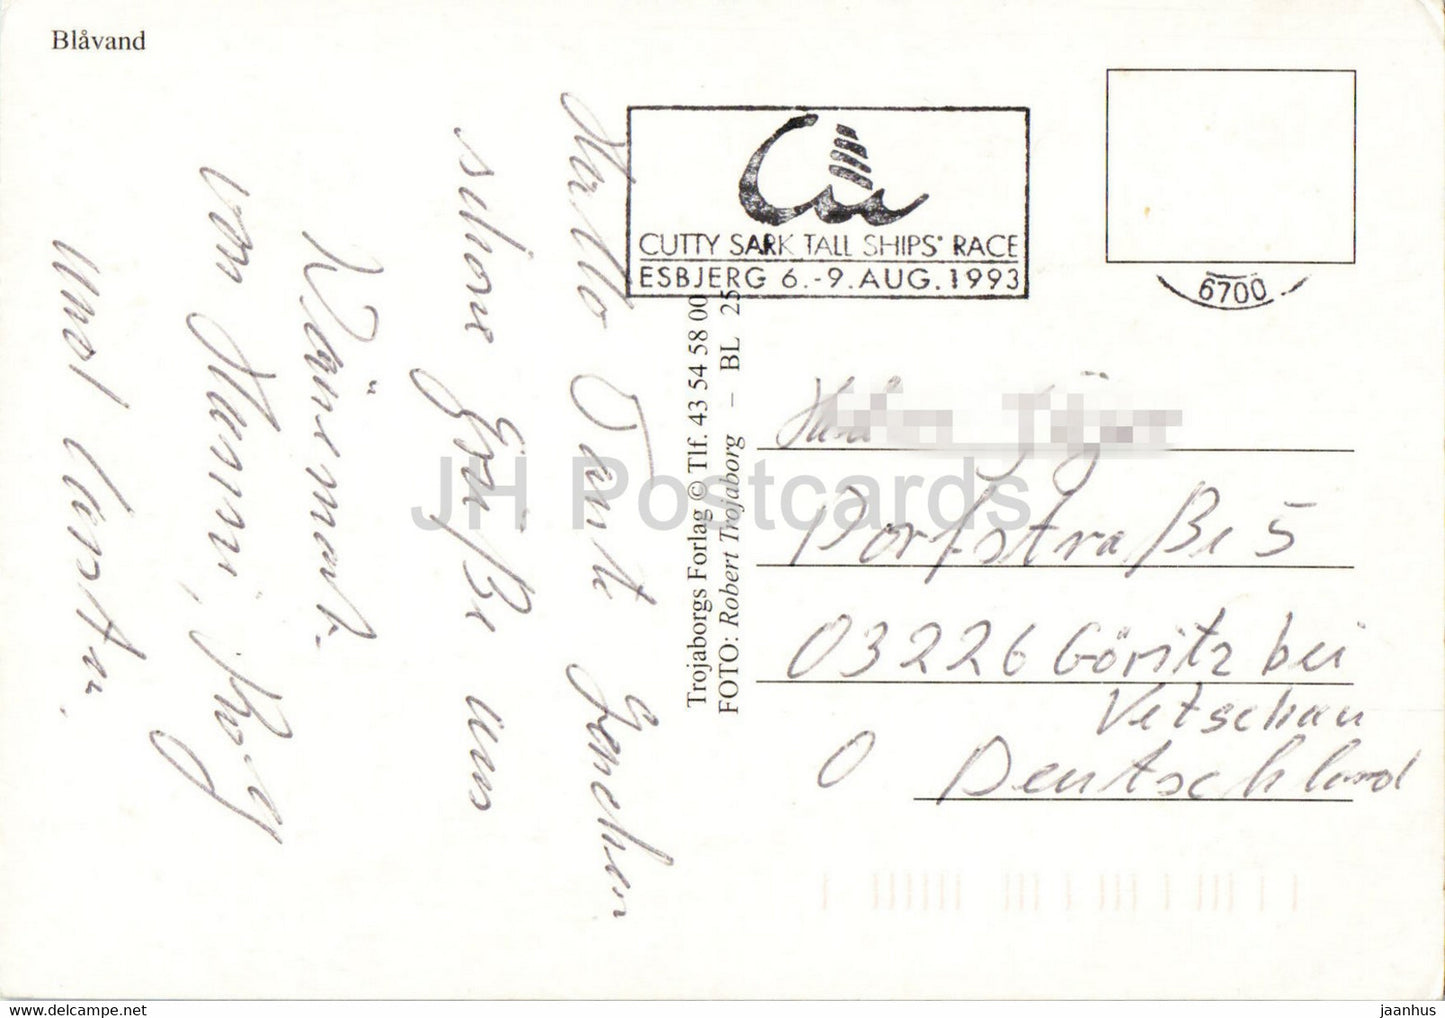 Blåvand
CUTTY SARK TALL SHIPS' RACE
ESBJERG 6.-9. AUG. 1993
6700
Trojaborgs Forlag © Tlf. 43 54 58 00
FOTO: Robert Trojaborg – BL 25
Hallo Tante Hanchen
schöne Grüße aus
Dänemark
von Hanni, Rolf
und Carsten.
Dorfstraße 5
03226 Göritz bei
Vetschau
O Deutschland
JH Postcards
jaanhus
www.delcampe.net